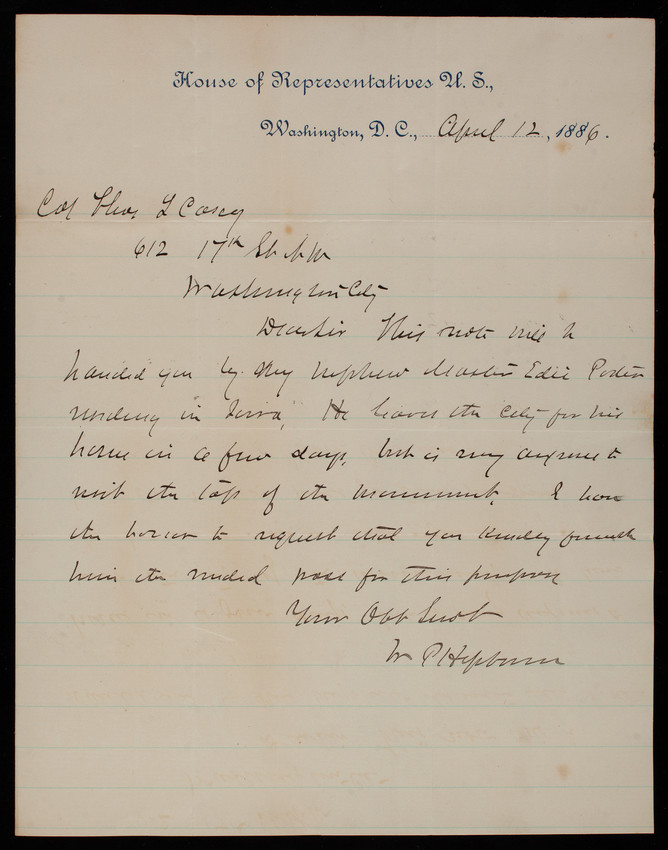 House of Representatives U. S.,
Washington, D. C., April 12, 1886.
Col Thos. L Casey
612 17th St N W
Washington City
Dear Sir This note will be
handed you by my nephew Master Edie
residing in Iowa, He leaves the City for his
home in a few days, but is very anxious to
visit the top of the monument. I have
the honor to request that you kindly furnish
him the needed pass for this purpose
Your Obt Servt
W P Hepburn